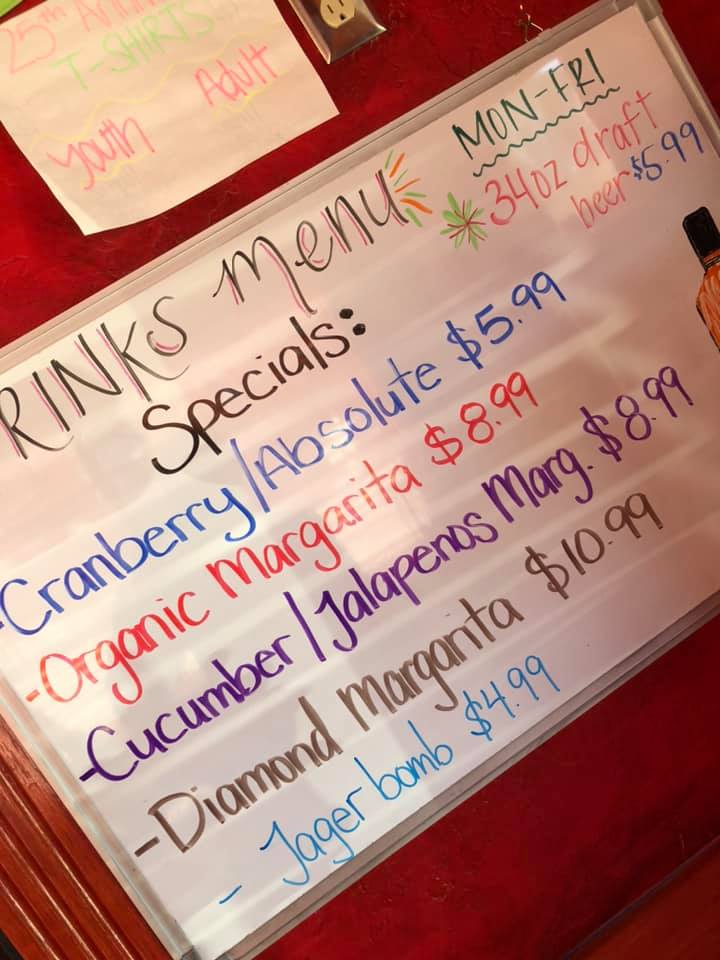 25th
T-SHIRTS
Youth Adult
RINKS Menu
MON-FRI
34oz draft
beer $5.99
Specials:
-Cranberry/Absolute $5.99
-Organic Margarita $8.99
-Cucumber/Jalapenos Marg. $8.99
-Diamond Margarita $10.99
- Jager bomb $4.99